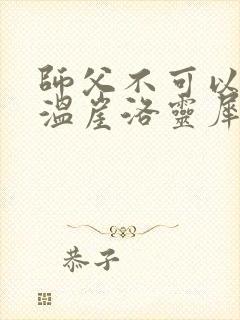 師父不可以
溫崖洛靈犀
恭子